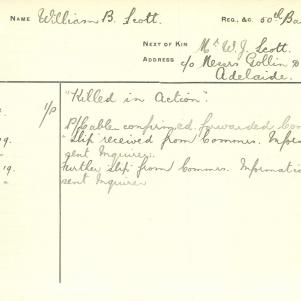 NAME William B. Scott. REG., &C. 50th Ba
NEXT OF KIN Mr W. J. Scott.
ADDRESS c/o Messrs Gollin &
Adelaide.
1/P "Killed in Action".
P/Cable confirmed forwarded
19. " slip received from Commrs. Infor
" sent Inquirer.
19. Further slip from Commrs. Informati
" sent Inquirer